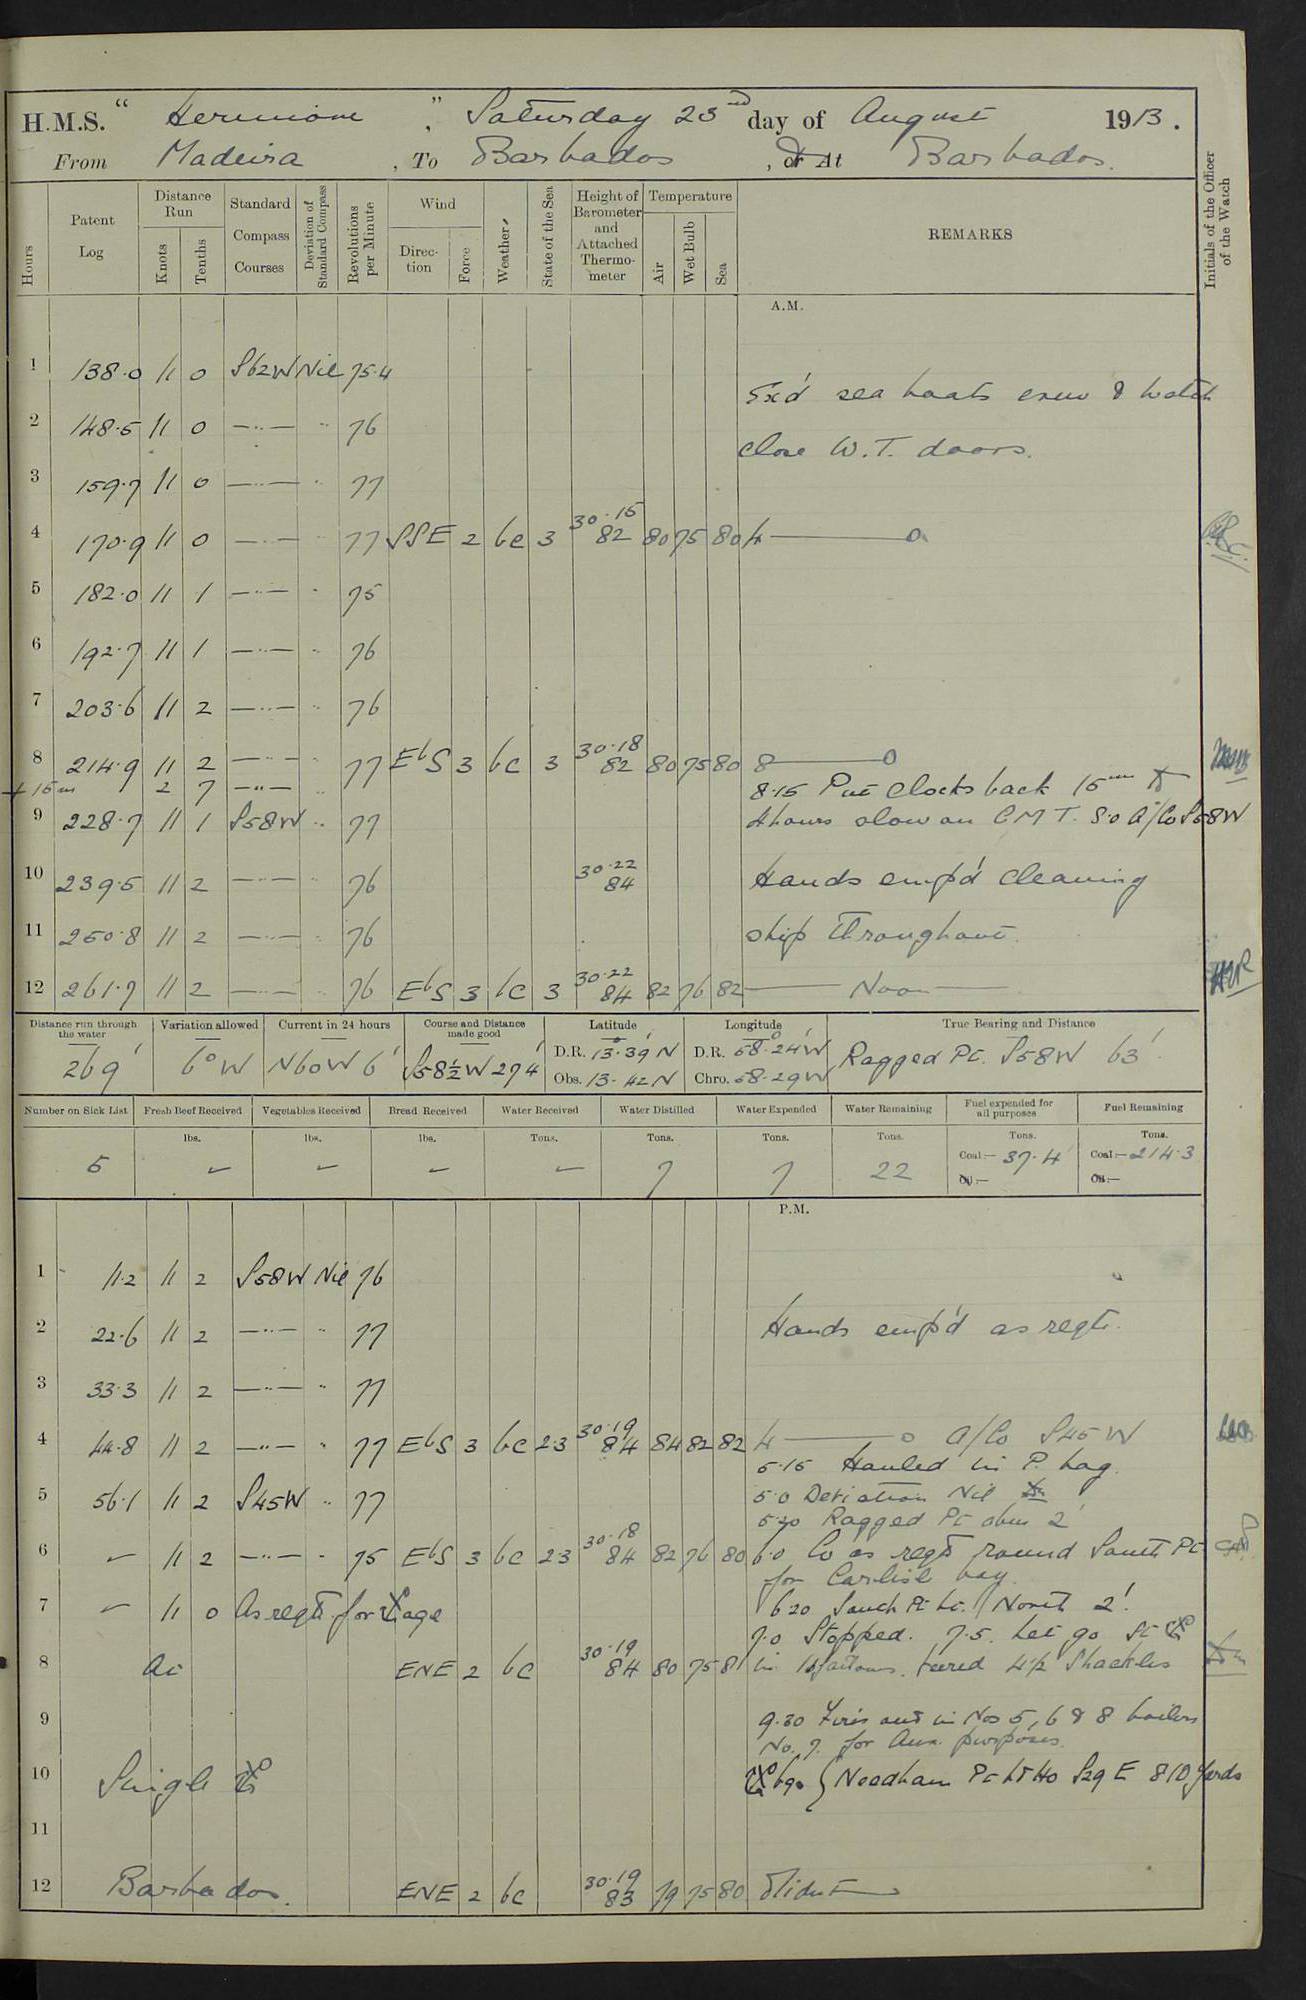 H.M.S. “ Hermione ”, Saturday 23rd day of August 1913.
From Madeira, To Barbados, or At Barbados.
Hours
Patent Log
Distance Run
Knots
Tenths
Standard Compass Courses
Deviation of Standard Compass
Revolutions per Minute
Wind
Direction
Force
Weather
State of the Sea
Height of Barometer and Attached Thermometer
Temperature
Air
Wet Bulb
Sea
REMARKS
Initials of the Officer of the Watch
A.M.
1 138.0 11 0 S62W Nil 75.4
Ex'd sea boats crew & watch
2 148.5 11 0 —..— .. 76
close W.T. doors.
3 159.7 11 0 —..— .. 77
4 170.9 11 0 —..— .. 77 SSE 2 bc 3 30.15 82 80 75 80 4 ——— o
5 182.0 11 1 —..— .. 75
6 192.7 11 1 —..— .. 76
7 203.6 11 2 —..— .. 76
8 214.9 11 2 —..— .. 77 EbS 3 bc 3 30.18 82 80 75 80 8 ——— o
+ 15m 2 7 —..— .. 8.15 Put clocks back 15m to
9 228.7 11 1 S58W .. 77 4 hours slow on GMT. 8.0 A/Co S58W
10 239.5 11 2 —..— .. 76 30.22 84 Hands emp'd cleaning
11 250.8 11 2 —..— .. 76 ship throughout.
12 261.7 11 2 —..— .. 76 EbS 3 bc 3 30.22 84 82 76 82 —— Noon ——
Distance run through the water 269'
Variation allowed 6°W
Current in 24 hours N60W 6'
Course and Distance made good S58½W 274'
Latitude D.R. 13.39 N Obs. 13.42 N
Longitude D.R. 58.24 W Chro. 58.29 W
True Bearing and Distance Ragged Pt. S58W 63'
Number on Sick List 5
Fresh Beef Received lbs. ~
Vegetables Received lbs. ~
Bread Received lbs. ~
Water Received Tons. ~
Water Distilled Tons. 7
Water Expended Tons. 7
Water Remaining Tons. 22
Fuel expended for all purposes Tons. Coal:— 37.4 Oil:—
Fuel Remaining Tons. Coal:— 214.3 Oil:—
P.M.
1 11.2 11 2 S58W Nil 76
2 22.6 11 2 —..— .. 77 Hands emp'd as reqte.
3 33.3 11 2 —..— .. 77
4 44.8 11 2 —..— .. 77 EbS 3 bc 23 30.19 84 84 82 82 4 ——— o A/Co S45W
5.15 Hauled in P. Log.
5 56.1 11 2 S45W .. 77 5.0 Deviation Nil
5.20 Ragged Pt abm 2'
6 ~ 11 2 —..— .. 75 EbS 3 bc 23 30.18 84 82 76 80 6.0 Co as reqte round South Pt
for Carlisle bay.
7 ~ 11 0 As reqte for ⚓age 6.20 South Pt Lt. North 2'.
7.0 Stopped. 7.5. Let go St ⚓
8 At ENE 2 bc 30.19 84 80 75 81 in 10 fathoms. veered 4½ Shackles
9 9.30 Fires out in Nos 5, 6 & 8 boilers
No. 7. for Aux. purposes.
10 Single ⚓ ⚓ bgs { Needham Pt Lt Ho S29E 810 yards
11
12 Barbados. ENE 2 bc 30.19 83 79 75 80 Midnt ——